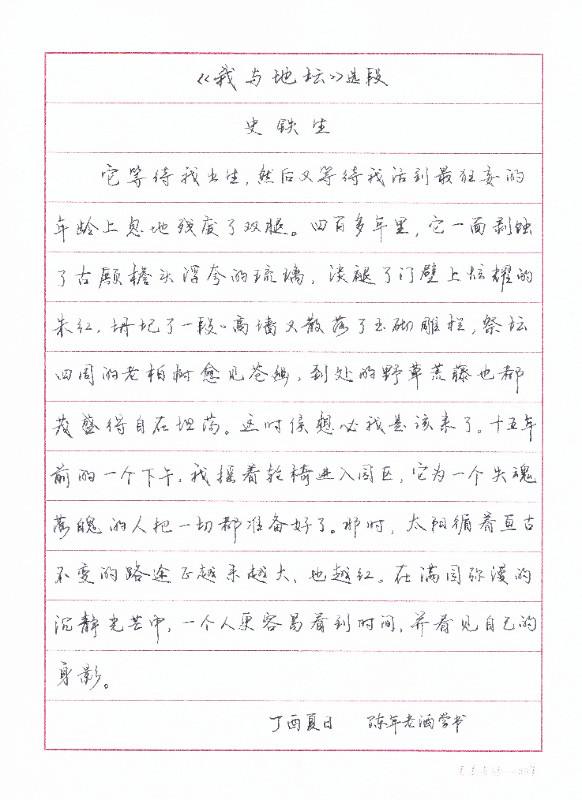 《我与地坛》选段
史铁生
它等待我出生，然后又等待我活到最狂妄的
年龄上忽地残废了双腿。四百多年里，它一面剥蚀
了古殿檐头浮夸的琉璃，淡褪了门壁上炫耀的
朱红，坍圮了一段高墙又散落了玉砌雕栏，祭坛
四周的老柏树愈见苍幽，到处的野草荒藤也都
茂盛得自在坦荡。这时候想必我是该来了。十五年
前的一个下午，我摇着轮椅进入园区，它为一个失魂
落魄的人把一切都准备好了。那时，太阳循着亘古
不变的路途正越来越大，也越红。在满园弥漫的
沉静光芒中，一个人更容易看到时间，并看见自己的
身影。
丁酉夏日 陈年老酒学书